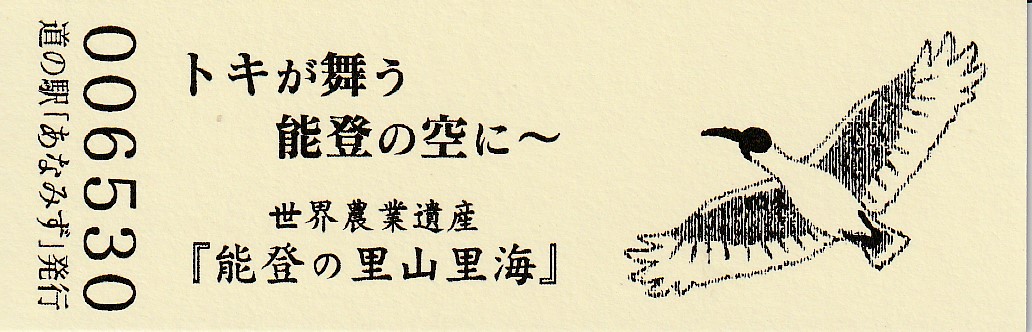 トキが舞う
能登の空に～
世界農業遺産
『能登の里山里海』
006530
道の駅「あなみず」発行